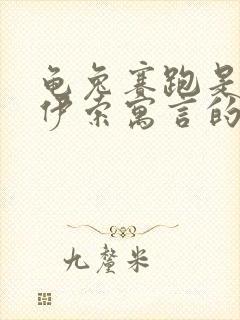 龟兔赛跑是
伊索寓言的
九釐米